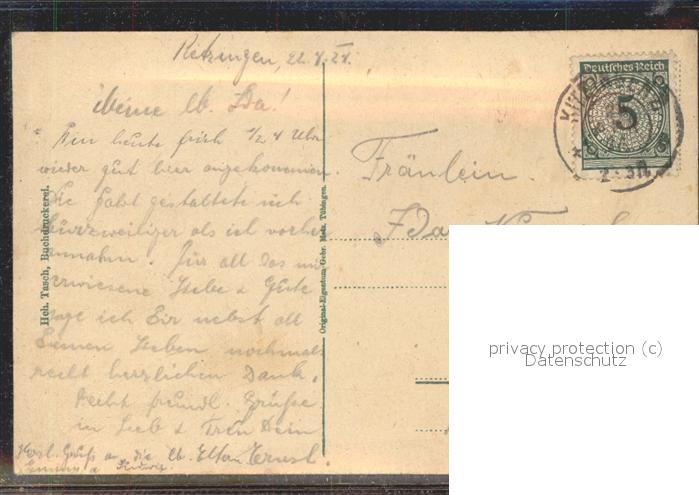 22.4.24.
Meine lb. Ida!
Bin heute früh 1/2 4 Uhr
wieder gut hier angekommen.
Die Fahrt gestaltete sich
kurzweiliger als ich vorher
annahm. Für all das mir
erwiesene Liebe & Güte
sage ich Dir nebst all
Deinen Lieben nochmals
recht herzlichen Dank.
Recht freundl. Grüße
in Lieb & Treu Dein
Ernst.
Herzl. Gruß an die lb. Eltern
Hch. Tasch, Buchdruckerei.
Original-Eigentum Gebr. Metz, Tübingen.
Deutsches Reich
5
Fräulein
Ida
privacy protection (c)
Datenschutz